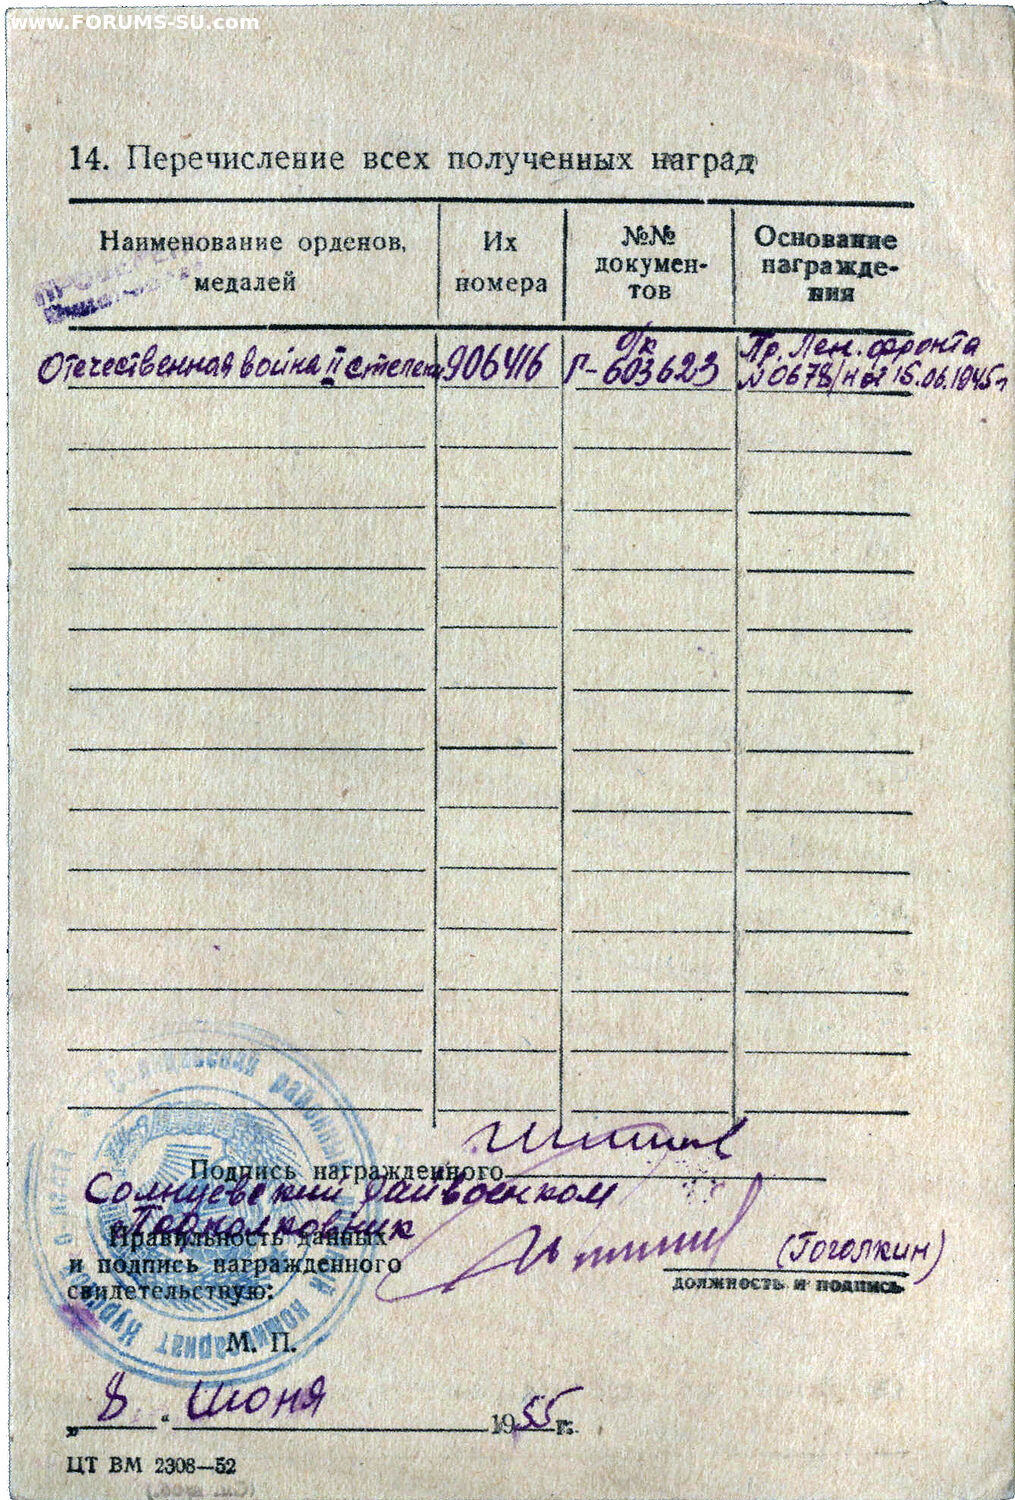 www.FORUMS-SU.com
14. Перечисление всех полученных наград
Наименование орденов, медалей
Их номера
№№ докумен-
тов
Основание
награжде-
ния
Отечественная война II степени 906416 о/к Г-603623 Пр. Лен. фронта
№ 0678/н от 15.06.1945г
Подпись награжденного
Солнцевский райвоенком
Подполковник
Правильность данных
и подпись награжденного
свидетельствую:
(Гоголкин)
должность и подпись
районный
комиссариат
М. П.
„ 8 “ Июня 1955 г.
ЦТ ВМ 2308—52